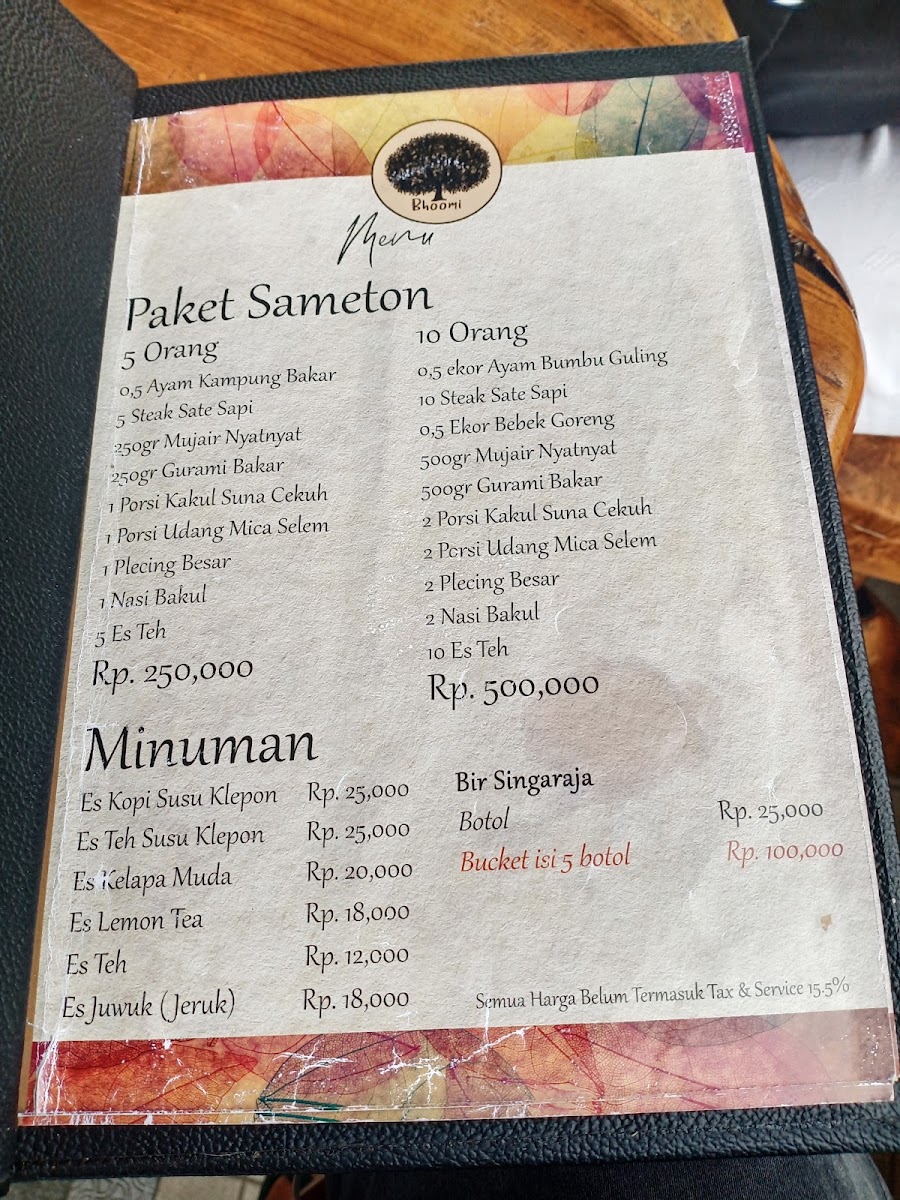 Bhoomi
Menu
Paket Sameton
5 Orang
0,5 Ayam Kampung Bakar
5 Steak Sate Sapi
250gr Mujair Nyatnyat
250gr Gurami Bakar
1 Porsi Kakul Suna Cekuh
1 Porsi Udang Mica Selem
1 Plecing Besar
1 Nasi Bakul
5 Es Teh
Rp. 250,000
10 Orang
0,5 ekor Ayam Bumbu Guling
10 Steak Sate Sapi
0,5 Ekor Bebek Goreng
500gr Mujair Nyatnyat
500gr Gurami Bakar
2 Porsi Kakul Suna Cekuh
2 Porsi Udang Mica Selem
2 Plecing Besar
2 Nasi Bakul
10 Es Teh
Rp. 500,000
Minuman
Es Kopi Susu Klepon Rp. 25,000
Es Teh Susu Klepon Rp. 25,000
Es Kelapa Muda Rp. 20,000
Es Lemon Tea Rp. 18,000
Es Teh Rp. 12,000
Es Juwuk (Jeruk) Rp. 18,000
Bir Singaraja
Botol Rp. 25,000
Bucket isi 5 botol Rp. 100,000
Semua Harga Belum Termasuk Tax & Service 15.5%